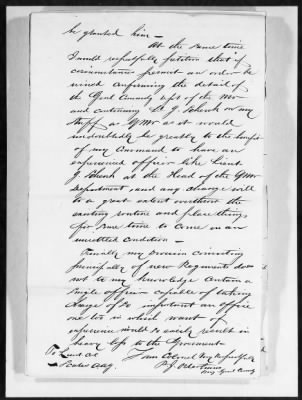 be granted him —
At the same time
I would respectfully petition that if
circumstances permit an order be
issued confirming the detail of
the Genl Comdg Dept of the
and continuing Lt J. Schenk on my
Staff as QMr as it would
undoubtedly be greatly to the benefit
of my Command to have an
experienced officer like Lieut
J. Schenk at the Head of the QMr
Department and any change will
to a great extent overthrow the
existing routine and place things
for some time to come in an
unsettled condition —
Finally my Division consisting
principally of new Regiments does
not to my Knowledge contain a
single officer capable of taking
charge of so important an office
one too in which want of
experience would so easily result in
heavy loss to the Government
To Lieut Col I am Colonel Very Respectfully
P. J. Osterhaus
Brig Genl Comdg